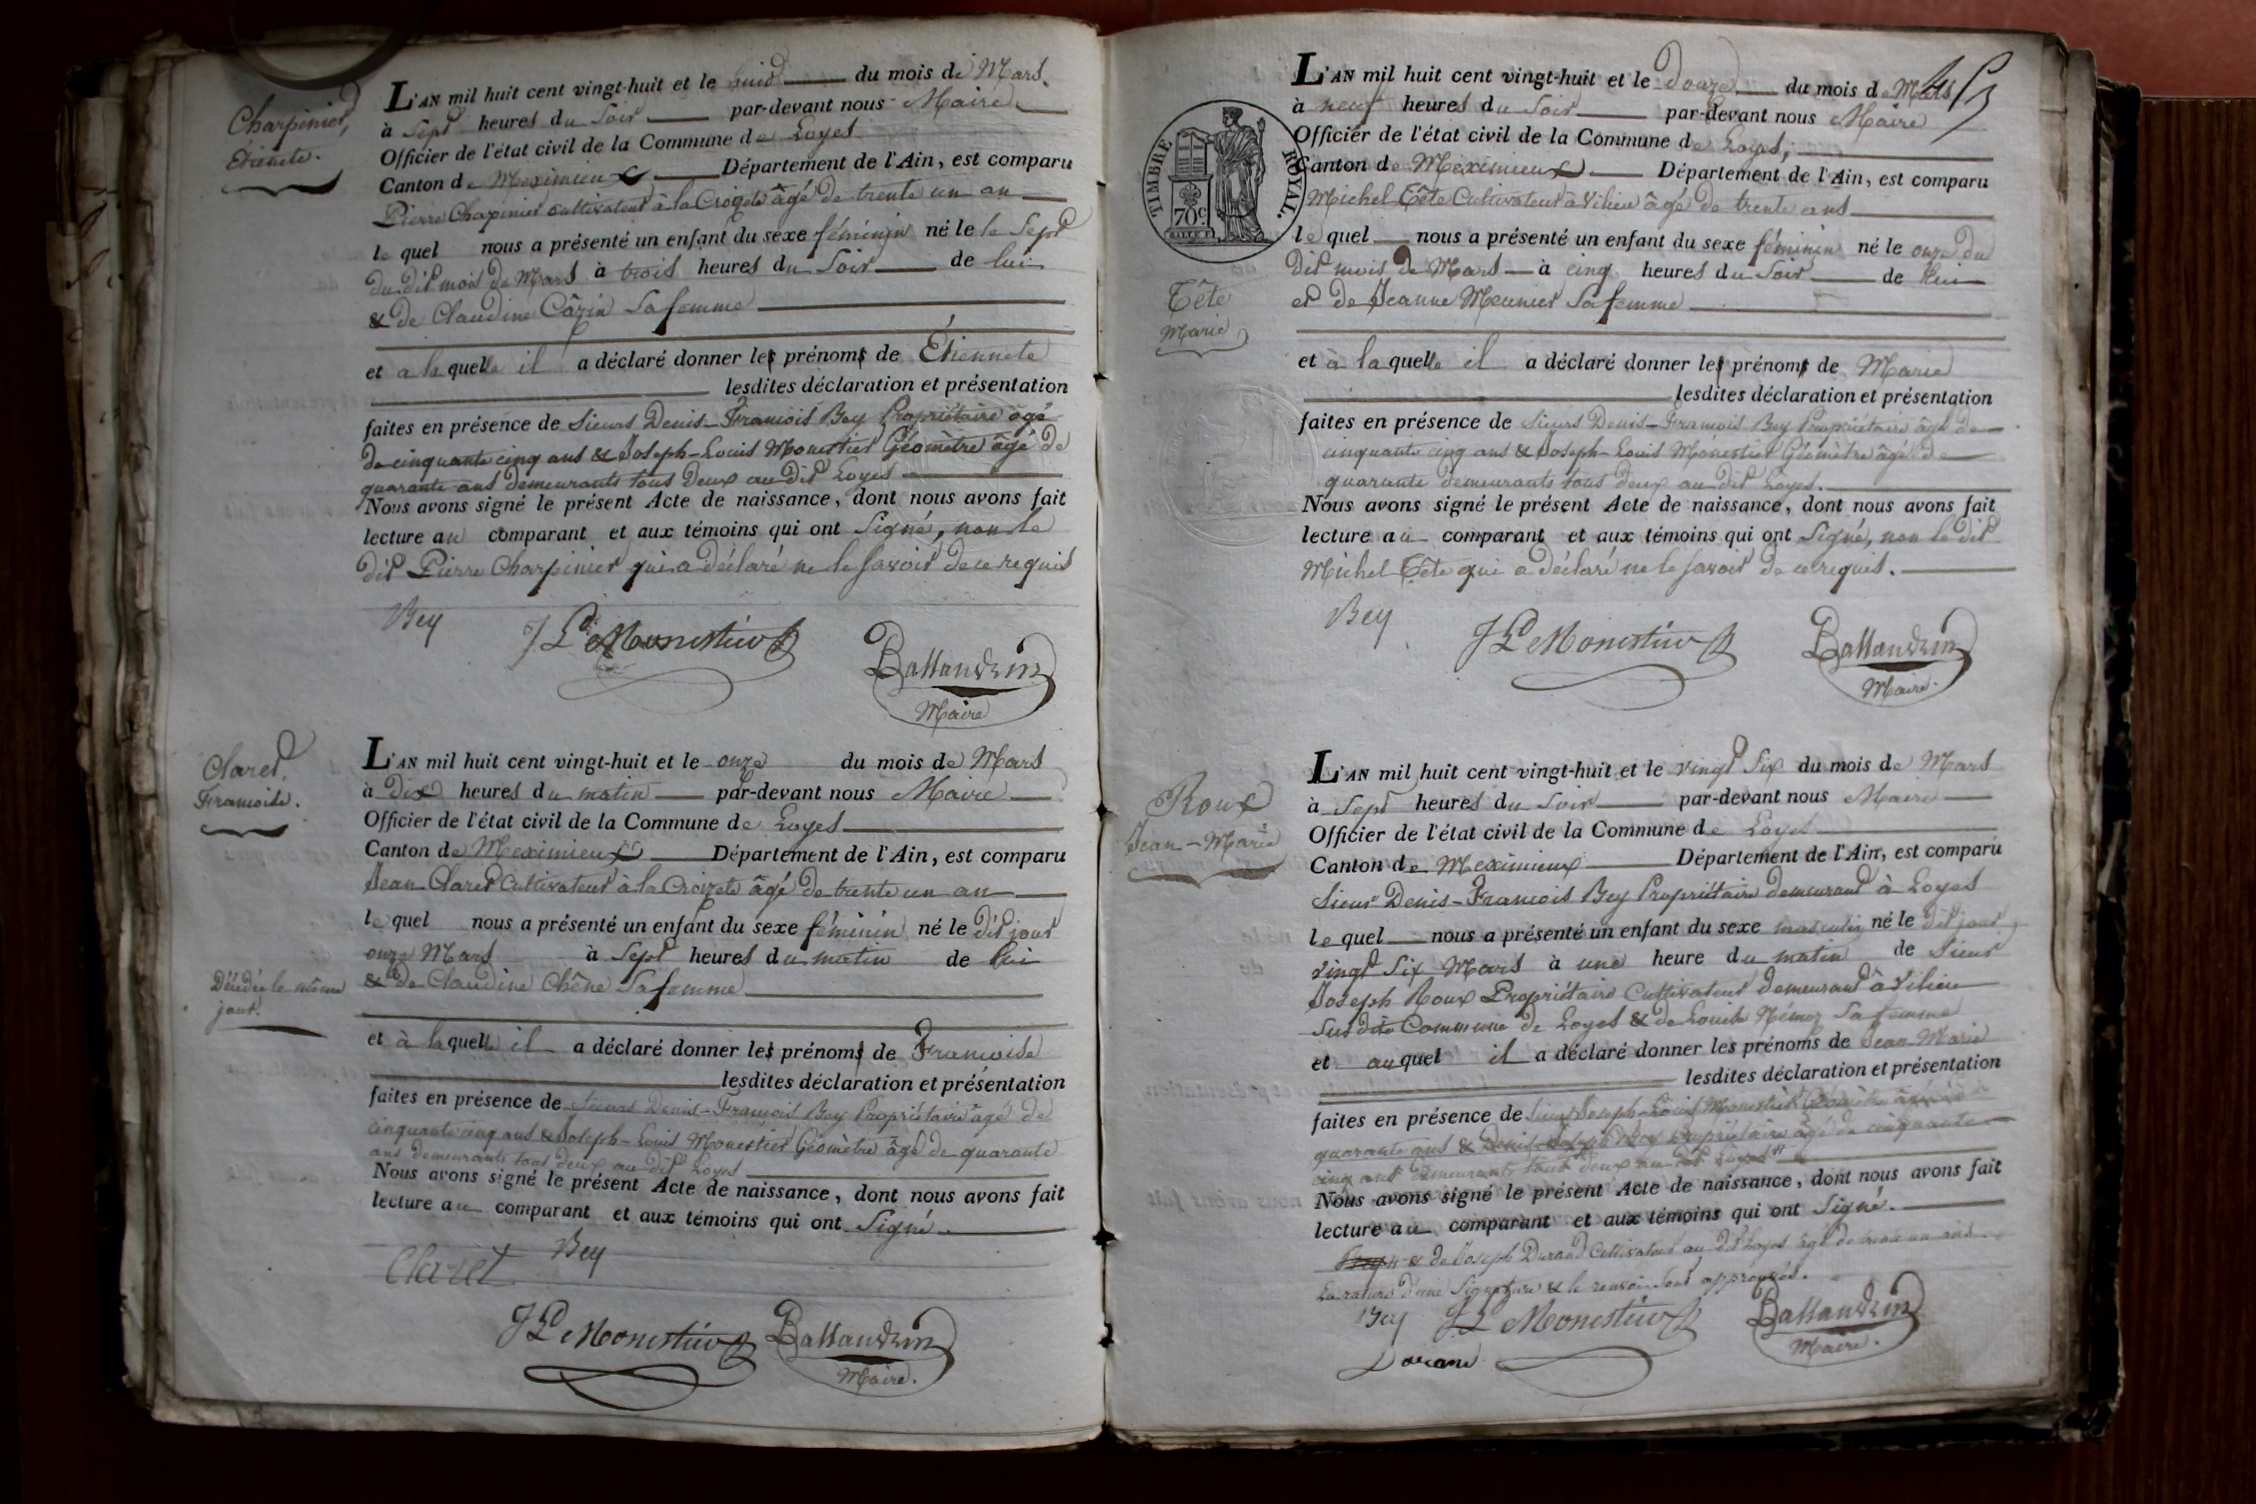 Charpinier,
Étiennete.
L'AN mil huit cent vingt-huit et le huit du mois de Mars.
à Sept heures du Soir par-devant nous Maire
Officier de l'état civil de la Commune de Loyes
Canton de Meximieux Département de l'Ain, est comparu
Pierre Charpinier cultivateur à la Croizete âgé de trente un an
le quel nous a présenté un enfant du sexe féminin né le le Sept
du dit mois de Mars à trois heures du Soir de lui
& de Claudine Sa femme
et a la quelle il a déclaré donner les prénoms de Étiennete
lesdites déclaration et présentation
faites en présence de Sieurs Denis-François Bey Propriétaire âgé
de cinquante cinq ans & Joseph-Louis Monestier Géomètre âgé de
quarante ans demeurants tous deux au dit Loyes
Nous avons signé le présent Acte de naissance, dont nous avons fait
lecture au comparant et aux témoins qui ont Signé, non le
dit Pierre Charpinier qui a déclaré ne le savoir de ce requis
Bey JL Monestier Ballandrin
Maire
Claret,
Francoise.
Décédée le même
jour.
L'AN mil huit cent vingt-huit et le onze du mois de Mars
à Dix heures du matin par-devant nous Maire
Officier de l'état civil de la Commune de Loyes
Canton de Meximieux Département de l'Ain, est comparu
Jean Claret Cultivateur à la Croizete âgé de trente un an
le quel nous a présenté un enfant du sexe féminin né le dit jour
onze Mars à Sept heures du matin de lui
& de Claudine Chêne Sa femme
et à la quelle il a déclaré donner les prénoms de Francoise
lesdites déclaration et présentation
faites en présence de Sieurs Denis-François Bey Propriétaire âgé de
cinquante cinq ans & Joseph-Louis Monestier Géomètre âgé de quarante
ans demeurants tous deux au dit Loyes
Nous avons signé le présent Acte de naissance, dont nous avons fait
lecture au comparant et aux témoins qui ont Signé.
Claret Bey
JL Monestier Ballandrin
Maire.
45
TIMBRE ROYAL.
70c
Tête
Marie
L'AN mil huit cent vingt-huit et le douze du mois de Mars
à neuf heures du Soir par-devant nous Maire
Officier de l'état civil de la Commune de Loyes,
Canton de Meximieux Département de l'Ain, est comparu
Michel Tête Cultivateur à Vilieu âgé de trente ans
le quel nous a présenté un enfant du sexe féminin né le onze du
dit mois de Mars à cinq heures du Soir de lui
et de Jeanne Meunier Sa femme
et à la quelle il a déclaré donner les prénoms de Marie
lesdites déclaration et présentation
faites en présence de Sieurs Denis-François Bey Propriétaire âgé de
cinquante cinq ans & Joseph-Louis Monestier Géomètre âgé de
quarante demeurants tous deux au dit Loyes.
Nous avons signé le présent Acte de naissance, dont nous avons fait
lecture au comparant et aux témoins qui ont Signé, non le dit
Michel Tête qui a déclaré ne le savoir de ce requis.
Bey JL Monestier Ballandrin
Maire.
Roux
Jean-Marie
L'AN mil huit cent vingt-huit et le vingt Six du mois de Mars
à Sept heures du Soir par-devant nous Maire
Officier de l'état civil de la Commune de Loyes
Canton de Meximieux Département de l'Ain, est comparu
Sieur Denis-François Bey Propriétaire demeurant à Loyes
le quel nous a présenté un enfant du sexe masculin né le dit jour
vingt Six Mars à une heure du matin de Sieur
Joseph Roux Propriétaire Cultivateur demeurant à Vilieu
Susdite Commune de Loyes & de Louise Sa femme
et au quel il a déclaré donner les prénoms de Jean Marie
lesdites déclaration et présentation
faites en présence de Sieurs Joseph-Louis Monestier Géomètre âgé de
quarante ans & Bey Propriétaire âgé de cinquante
cinq ans demeurants tous deux au dit Loyes
Nous avons signé le présent Acte de naissance, dont nous avons fait
lecture au comparant et aux témoins qui ont Signé.
& de Joseph Durand Cultivateur au dit Loyes âgé de ans
La rature d'une Signature & le renvoi sont approuvés.
Bey JL Monestier Ballandrin
Maire.